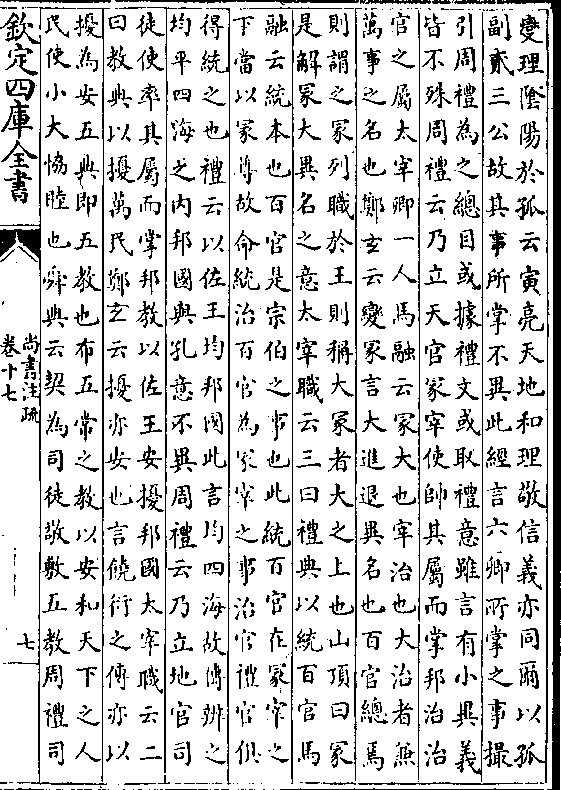 燮理隂陽於孤云寅亮天地和理敬信義亦同爾以孤
副貳三公故其事所掌不異此經言六卿所掌之事撮
引周禮為之總目或據禮文或取禮意雖言有小異義
皆不殊周禮云乃立天官冢宰使帥其屬而掌邦治治
官之屬太宰卿一人馬融云冢大也宰治也大治者兼
萬事之名也鄭𤣥云變冢言大進退異名也百官總焉
則謂之冢列職於王則稱大冢者大之上也山頂曰冢
是解冢大異名之意太宰職云三曰禮典以統百官馬
融云統本也百官是宗伯之事也此統百官在冢宰之
下當以冢尊故命統治百官為冢宰之事治官禮官俱
得統之也禮云以佐王均邦國此言均四海故傳辨之
均平四海之内邦國與孔意不異周禮云乃立地官司
徒使率其屬而掌邦教以佐王安擾邦國太宰職云二
曰教典以擾萬民鄭𤣥云擾亦安也言饒衍之傳亦以
擾為安五典即五教也布五常之教以安和天下之人
民使小大恊睦也舜典云契為司徒敬敷五教周禮司
欽定四庫全書
尚書注疏
卷十七
七